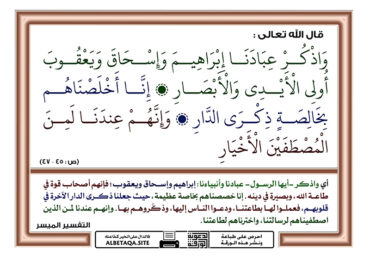 قال الله تعالى :
وَاذْكُرْ عِبَادَنَا إِبْرَاهِيمَ وَإِسْحَاقَ وَيَعْقُوبَ
أُولِي الْأَيْدِي وَالْأَبْصَارِ ۞ إِنَّا أَخْلَصْنَاهُم
بِخَالِصَةٍ ذِكْرَى الدَّارِ ۞ وَإِنَّهُمْ عِندَنَا لَمِنَ
الْمُصْطَفَيْنَ الْأَخْيَارِ
(ص: ٤٥ - ٤٧)
أي واذكر -أيها الرسول- عبادنا وأنبياءنا: إبراهيم وإسحاق ويعقوب؛ فإنهم أصحاب قوة في
طاعة الله، وبصيرة في دينه. إنا خصصناهم بخاصة عظيمة، حيث جعلنا ذكرى الدار الآخرة في
قلوبهم، فعملوا لها بطاعتنا، ودعوا الناس إليها، وذكروهم بها. وإنهم عندنا لمن الذين
اصطفيناهم لرسالتنا، واخترناهم لطاعتنا.
التفسير الميسر
احرص على طباعة
ونشر هذه الورقة
ALBETAQA.SITE